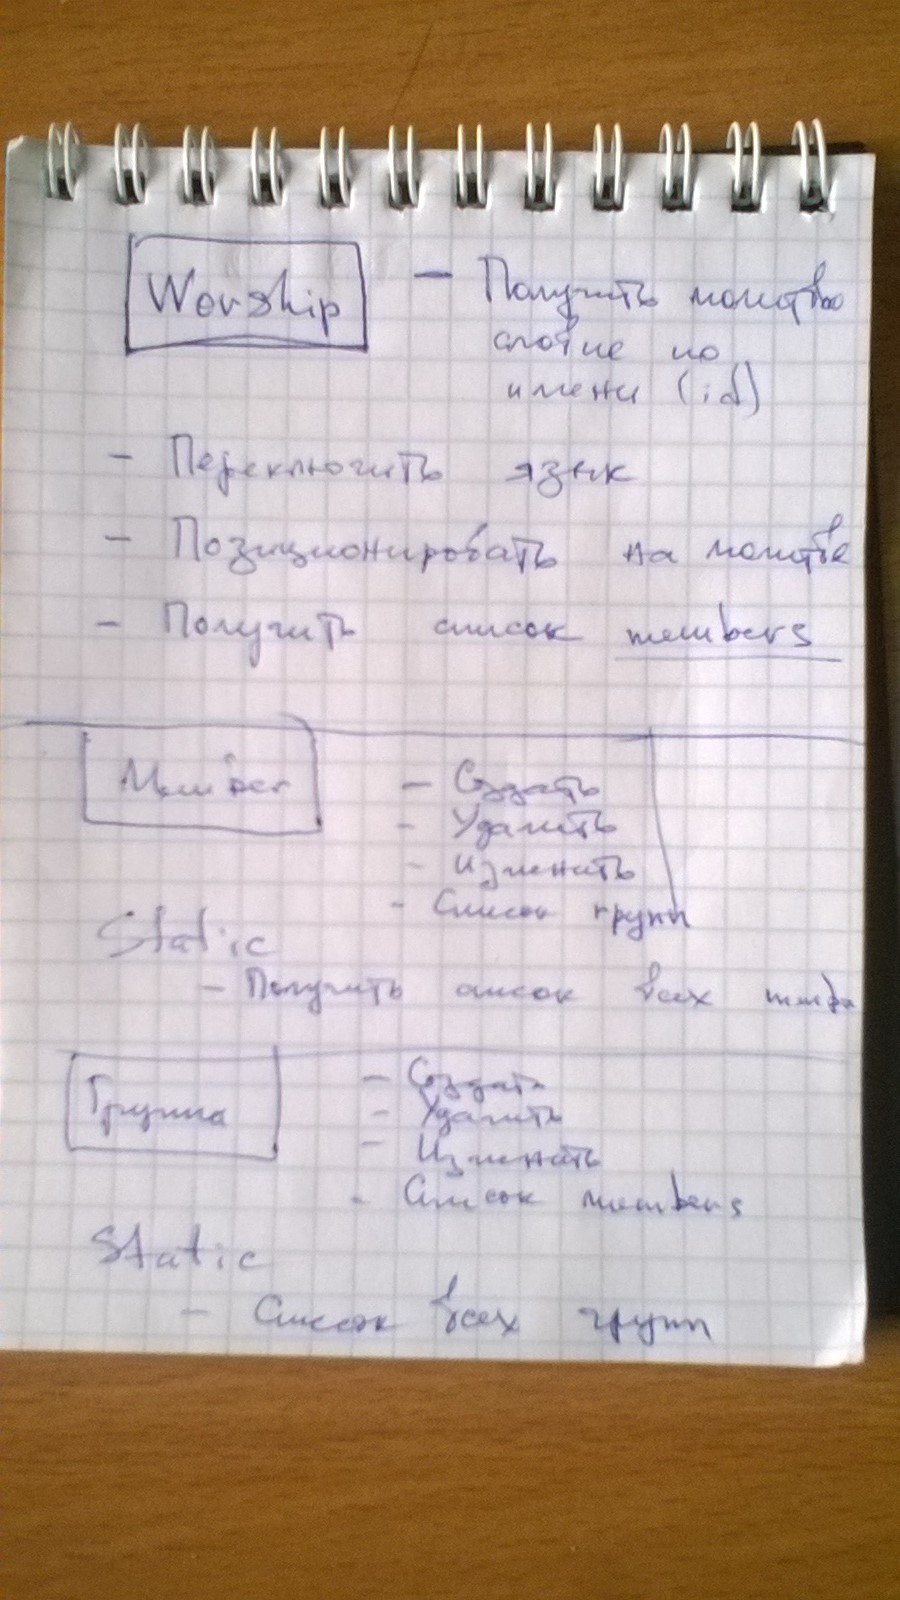 Worship
- Получить молитво
словие по
имени (id)
- Переключить язык
- Позиционировать на молитве
- Получить список members
Member
- Создать
- Удалить
- Изменить
- Список групп
Static
- Получить список всех
Группа
- Создать
- Удалить
- Изменить
- Список members
Static
- Список всех групп